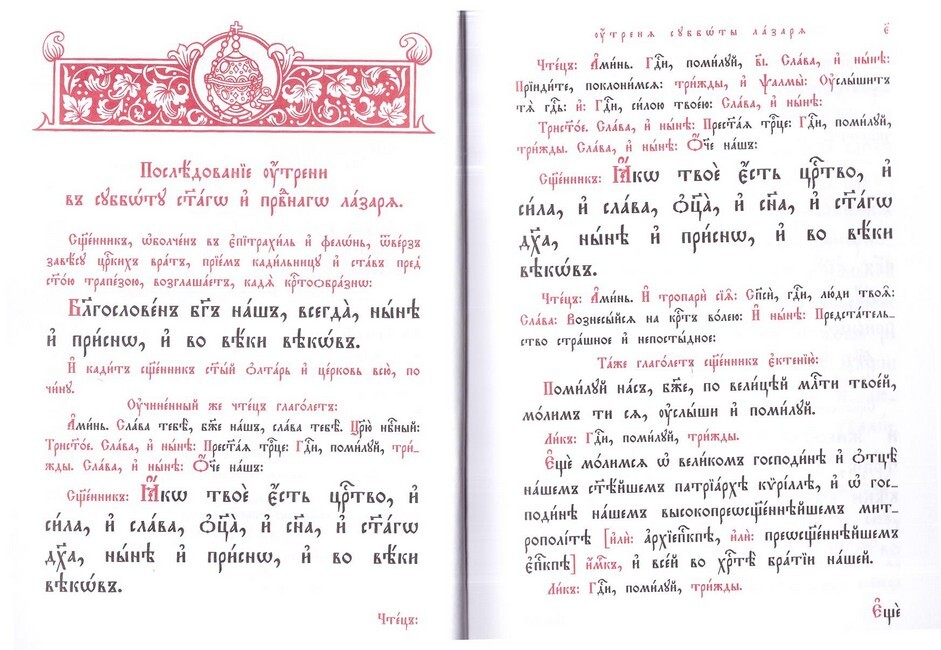 Послѣ́дованїе оу҆́трени
въ сꙋббѡ́тꙋ ст҃а́гѡ и҆ пра́внагѡ ла́зарѧ.
Сщ҃е́нникъ, ѡ҆болче́нъ въ є҆пїтрахи́ль и҆ фело́нь, ѿве́рзъ
завѣ́сꙋ цр҃кихъ вра́тъ, прїе́мъ кади́льницꙋ и҆ ста́въ пред
ст҃о́ю трапе́зою, возглаша́етъ, кадѧ̀ крⷭ҇тоѻбра́знѡ:
Благослове́нъ бг҃ъ на́шъ, всегда̀, ны́нѣ
и҆ при́снѡ, и҆ во вѣ́ки вѣкѡ́въ.
И҆ кади́тъ сщ҃е́нникъ ст҃ы́й ѻ҆лта́рь и҆ це́рковь всю̀, по
чи́нꙋ.
Оу҆чине́нный же чте́цъ глаго́летъ:
А҆ми́нь. Сла́ва тебѣ̀, бж҃е на́шъ, сла́ва тебѣ̀. Цр҃ю̀ нбⷭ҇ный:
Трист҃о́е. Сла́ва, и҆ ны́нѣ: Прест҃а́ѧ трⷪ҇це: Гдⷭ҇и, поми́лꙋй, три́_
жды. Сла́ва, и҆ ны́нѣ: Ѻ҆́ч҃е на́шъ:
Сщ҃е́нникъ: Ꙗ҆́кѡ твоѐ є҆́сть црⷭ҇тво, и҆
си́ла, и҆ сла́ва, ѻ҆ц҃а̀, и҆ сн҃а, и҆ ст҃а́гѡ
дх҃а, ны́нѣ и҆ при́снѡ, и҆ во вѣ́ки
вѣкѡ́въ.
Чте́цъ:
оу҆́тренѧ сꙋббѡ́ты ла́зарѧ є҃
Чте́цъ: А҆ми́нь. Гдⷭ҇и, поми́лꙋй, в҃і. Сла́ва, и҆ ны́нѣ:
Прїиди́те, поклони́мсѧ: три́жды, и҆ ѱалмы̀: Оу҆слы́шитъ
тѧ̀ гдⷭ҇ь: и҆: Гдⷭ҇и, си́лою твое́ю: Сла́ва, и҆ ны́нѣ:
Трист҃о́е. Сла́ва, и҆ ны́нѣ: Прест҃а́ѧ трⷪ҇це: Гдⷭ҇и, поми́лꙋй,
три́жды. Сла́ва, и҆ ны́нѣ: Ѻ҆́ч҃е на́шъ:
Сщ҃е́нникъ: Ꙗ҆́кѡ твоѐ є҆́сть црⷭ҇тво, и҆
си́ла, и҆ сла́ва, ѻ҆ц҃а̀, и҆ сн҃а, и҆ ст҃а́гѡ
дх҃а, ны́нѣ и҆ при́снѡ, и҆ во вѣ́ки
вѣкѡ́въ.
Чте́цъ: А҆ми́нь. И҆ тропари̑ сїѧ̑: Сп҃сѝ, гдⷭ҇и, лю́ди твоѧ̑:
Сла́ва: Вознесы́йсѧ на крⷭ҇тъ во́лею: И҆ ны́нѣ: Предста́тель_
ство стра́шное и҆ непосты́дное:
Та́же глаго́летъ сщ҃е́нникъ є҆ктенїю̀:
Поми́лꙋй на́съ, бж҃е, по вели́цѣй млⷭ҇ти твое́й,
мо́лимъ ти сѧ, оу҆слы́ши и҆ поми́лꙋй.
Ли́къ: Гдⷭ҇и, поми́лꙋй, три́жды.
Є҆щѐ мо́лимсѧ ѡ҆ вели́комъ господи́нѣ и҆ ѻ҆тцѣ̀
на́шемъ ст҃ѣ́йшемъ патрїа́рхѣ кѷрі́ллѣ, и҆ ѡ҆ гос_
поди́нѣ на́шемъ высокопреѡсщ҃е́ннѣйшемъ мит_
рополі́тѣ [и҆лѝ: а҆рхїепⷭ҇кпѣ, и҆лѝ: преѡсщ҃е́ннѣйшемъ
є҆пⷭ҇кпѣ] и҆́м҃къ, и҆ все́й во хрⷭ҇тѣ̀ бра́тїи на́шей.
Ли́къ: Гдⷭ҇и, поми́лꙋй, три́жды.
Є҆щѐ